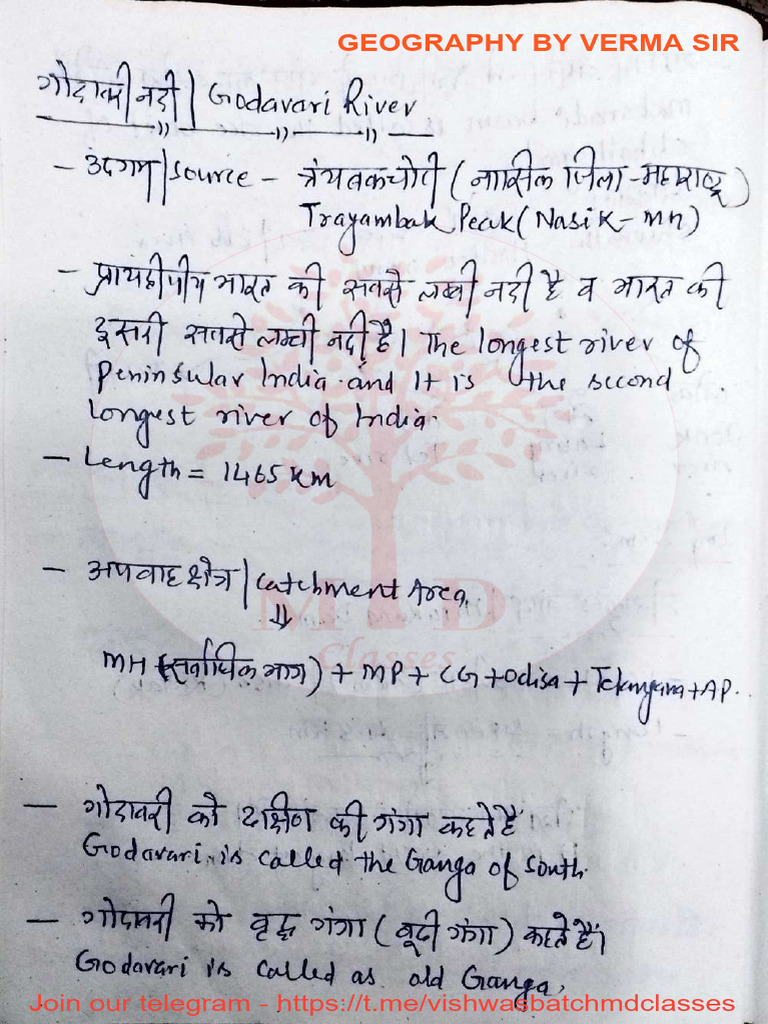 GEOGRAPHY BY VERMA SIR
गोदावरी नदी | Godavari River
- उदगम | Source - त्रंयबकचोटी ( नासिक जिला - महाराष्ट्र )
Trayambak Peak ( Nasik - mh )
- प्रायद्वीपीय भारत की सबसे लम्बी नदी है व भारत की
दुसरी सबसे लम्बी नदी है। The longest river of
Peninsular India and It is the second
longest river of India.
- Length = 1465 km
- अपवाह क्षेत्र | Catchment Area
⇓
MH (सर्वाधिक भाग) + MP + CG + Odisa + Telangana + AP.
MD
Classes
- गोदावरी को दक्षिण की गंगा कहते है
Godavari is called the Ganga of South.
- गोदावरी को वृद्ध गंगा ( बूढी गंगा ) कहते हैं।
Godavari is called as old Ganga.
Join our telegram - https://t.me/vishwasbatchmdclasses